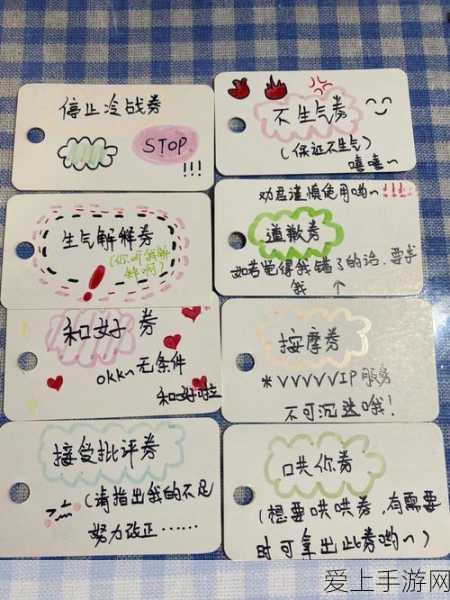 停止冷战券
STOP
!!!
不生气券
(保证不生气)
嘻嘻~
生气解释券
(你听我解释啊)
!
劝君谨慎使用哟~!!!!
道歉券
如若觉得我错了的话,要求我 ↑
和好券
okk~无条件
和好啦
按摩券
*VVVVVIP服务
不可沉迷哦!
接受批评券
(请指出我的不足
努力改正……
哄你券
(想要哄哄券,有需要
时可拿出此券哟~)
爱上手游网